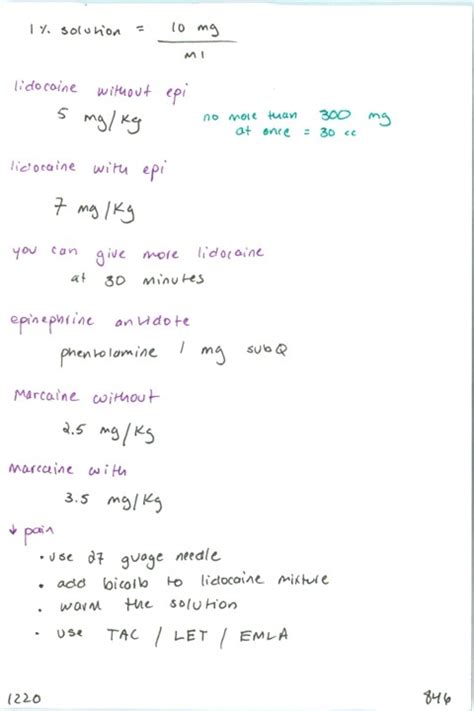 1% solution = 10 mg
ml
lidocaine without epi
5 mg/kg
no more than 300 mg
at once = 30 cc
lidocaine with epi
7 mg/kg
you can give more lidocaine
at 30 minutes
epinephrine antidote
phentolamine 1 mg subQ
Marcaine without
2.5 mg/kg
marcaine with
3.5 mg/kg
↓ pain
• use 27 guage needle
• add bicarb to lidocaine mixture
• warm the solution
• use TAC / LET / EMLA
1220
846